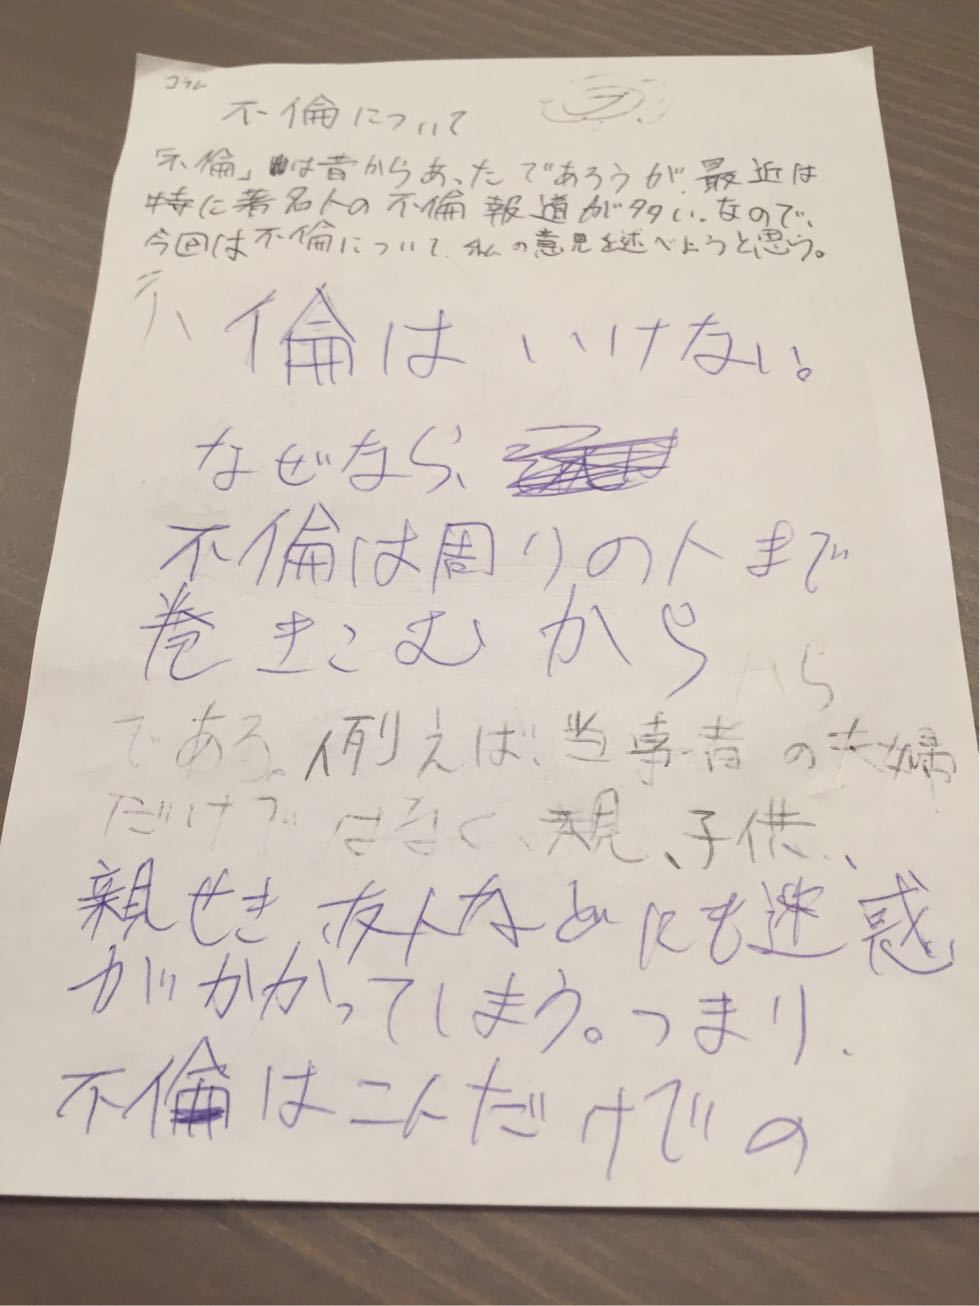 コラム
不倫について
「不倫」は昔からあったであろうが、最近は
特に著名人の不倫報道が多い。なので、
今回は不倫について、私の意見を述べようと思う。
不倫はいけない。
なぜなら、
不倫は周りの人まで
巻きこむから
から
である。例えば、当事者の夫婦
だけではなく、親、子供、
親せき、友人などにも迷惑
がかかってしまう。つまり、
不倫は二人だけでの